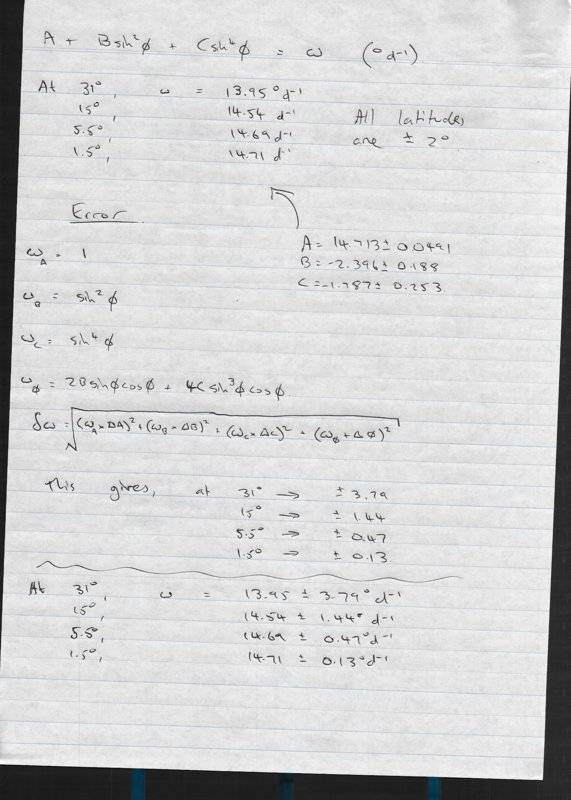 A + Bsin²φ + Csin⁴φ = ω (°d⁻¹)
At 31°, ω = 13.95°d⁻¹
15°, 14.54 d⁻¹
5.5°, 14.69 d⁻¹
1.5°, 14.71 d⁻¹
All latitudes
are ± 2°
Error
A = 14.713 ± 0.0491
B = -2.396 ± 0.188
C = -1.787 ± 0.253
ω_A = 1
ω_B = sin²φ
ω_C = sin⁴φ
ω_φ = 2Bsinφcosφ + 4Csin³φcosφ.
δω = √((ω_A × ΔA)² + (ω_B × ΔB)² + (ω_C × ΔC)² + (ω_φ + Δφ)²)
This gives, at 31° → ± 3.79
15° → ± 1.44
5.5° → ± 0.47
1.5° → ± 0.13
At 31°, ω = 13.95 ± 3.79°d⁻¹
15°, 14.54 ± 1.44°d⁻¹
5.5°, 14.69 ± 0.47°d⁻¹
1.5°, 14.71 ± 0.13°d⁻¹